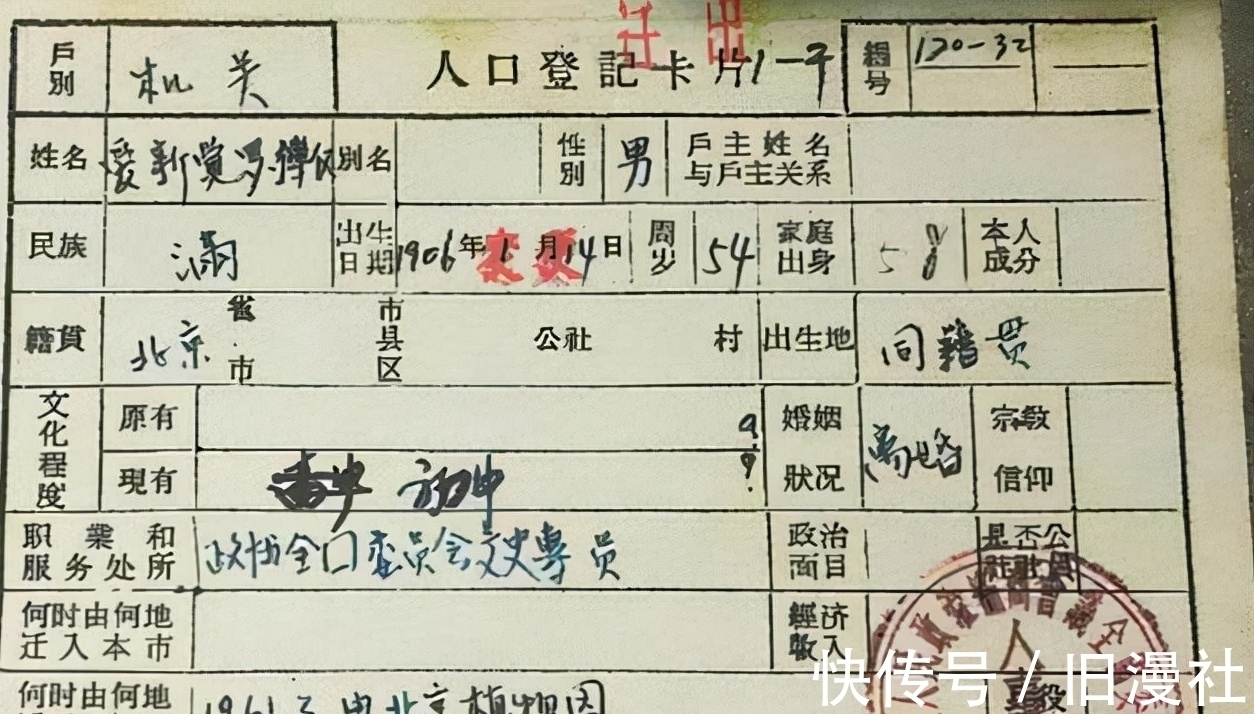 迁出
戶別 机关 人口登記卡片 編号 120-32
姓名 爱新觉罗 別名 性別 男 戶主姓名与戶主关系
民族 满 出生日期 1906年1月14日 周岁 54 家庭出身 58 本人成分
籍貫 北京 省市 市县区 公社 村 出生地 同籍贯
文化程度 原有 婚姻狀况 离婚 宗教信仰
現有 初中
职業和服务处所 政协全口委员会文史專员 政治面目 是否公社社員
何时由何地迁入本市 經济收入
何时由何地 1961 由北京植物园 役
快传号/旧漫社